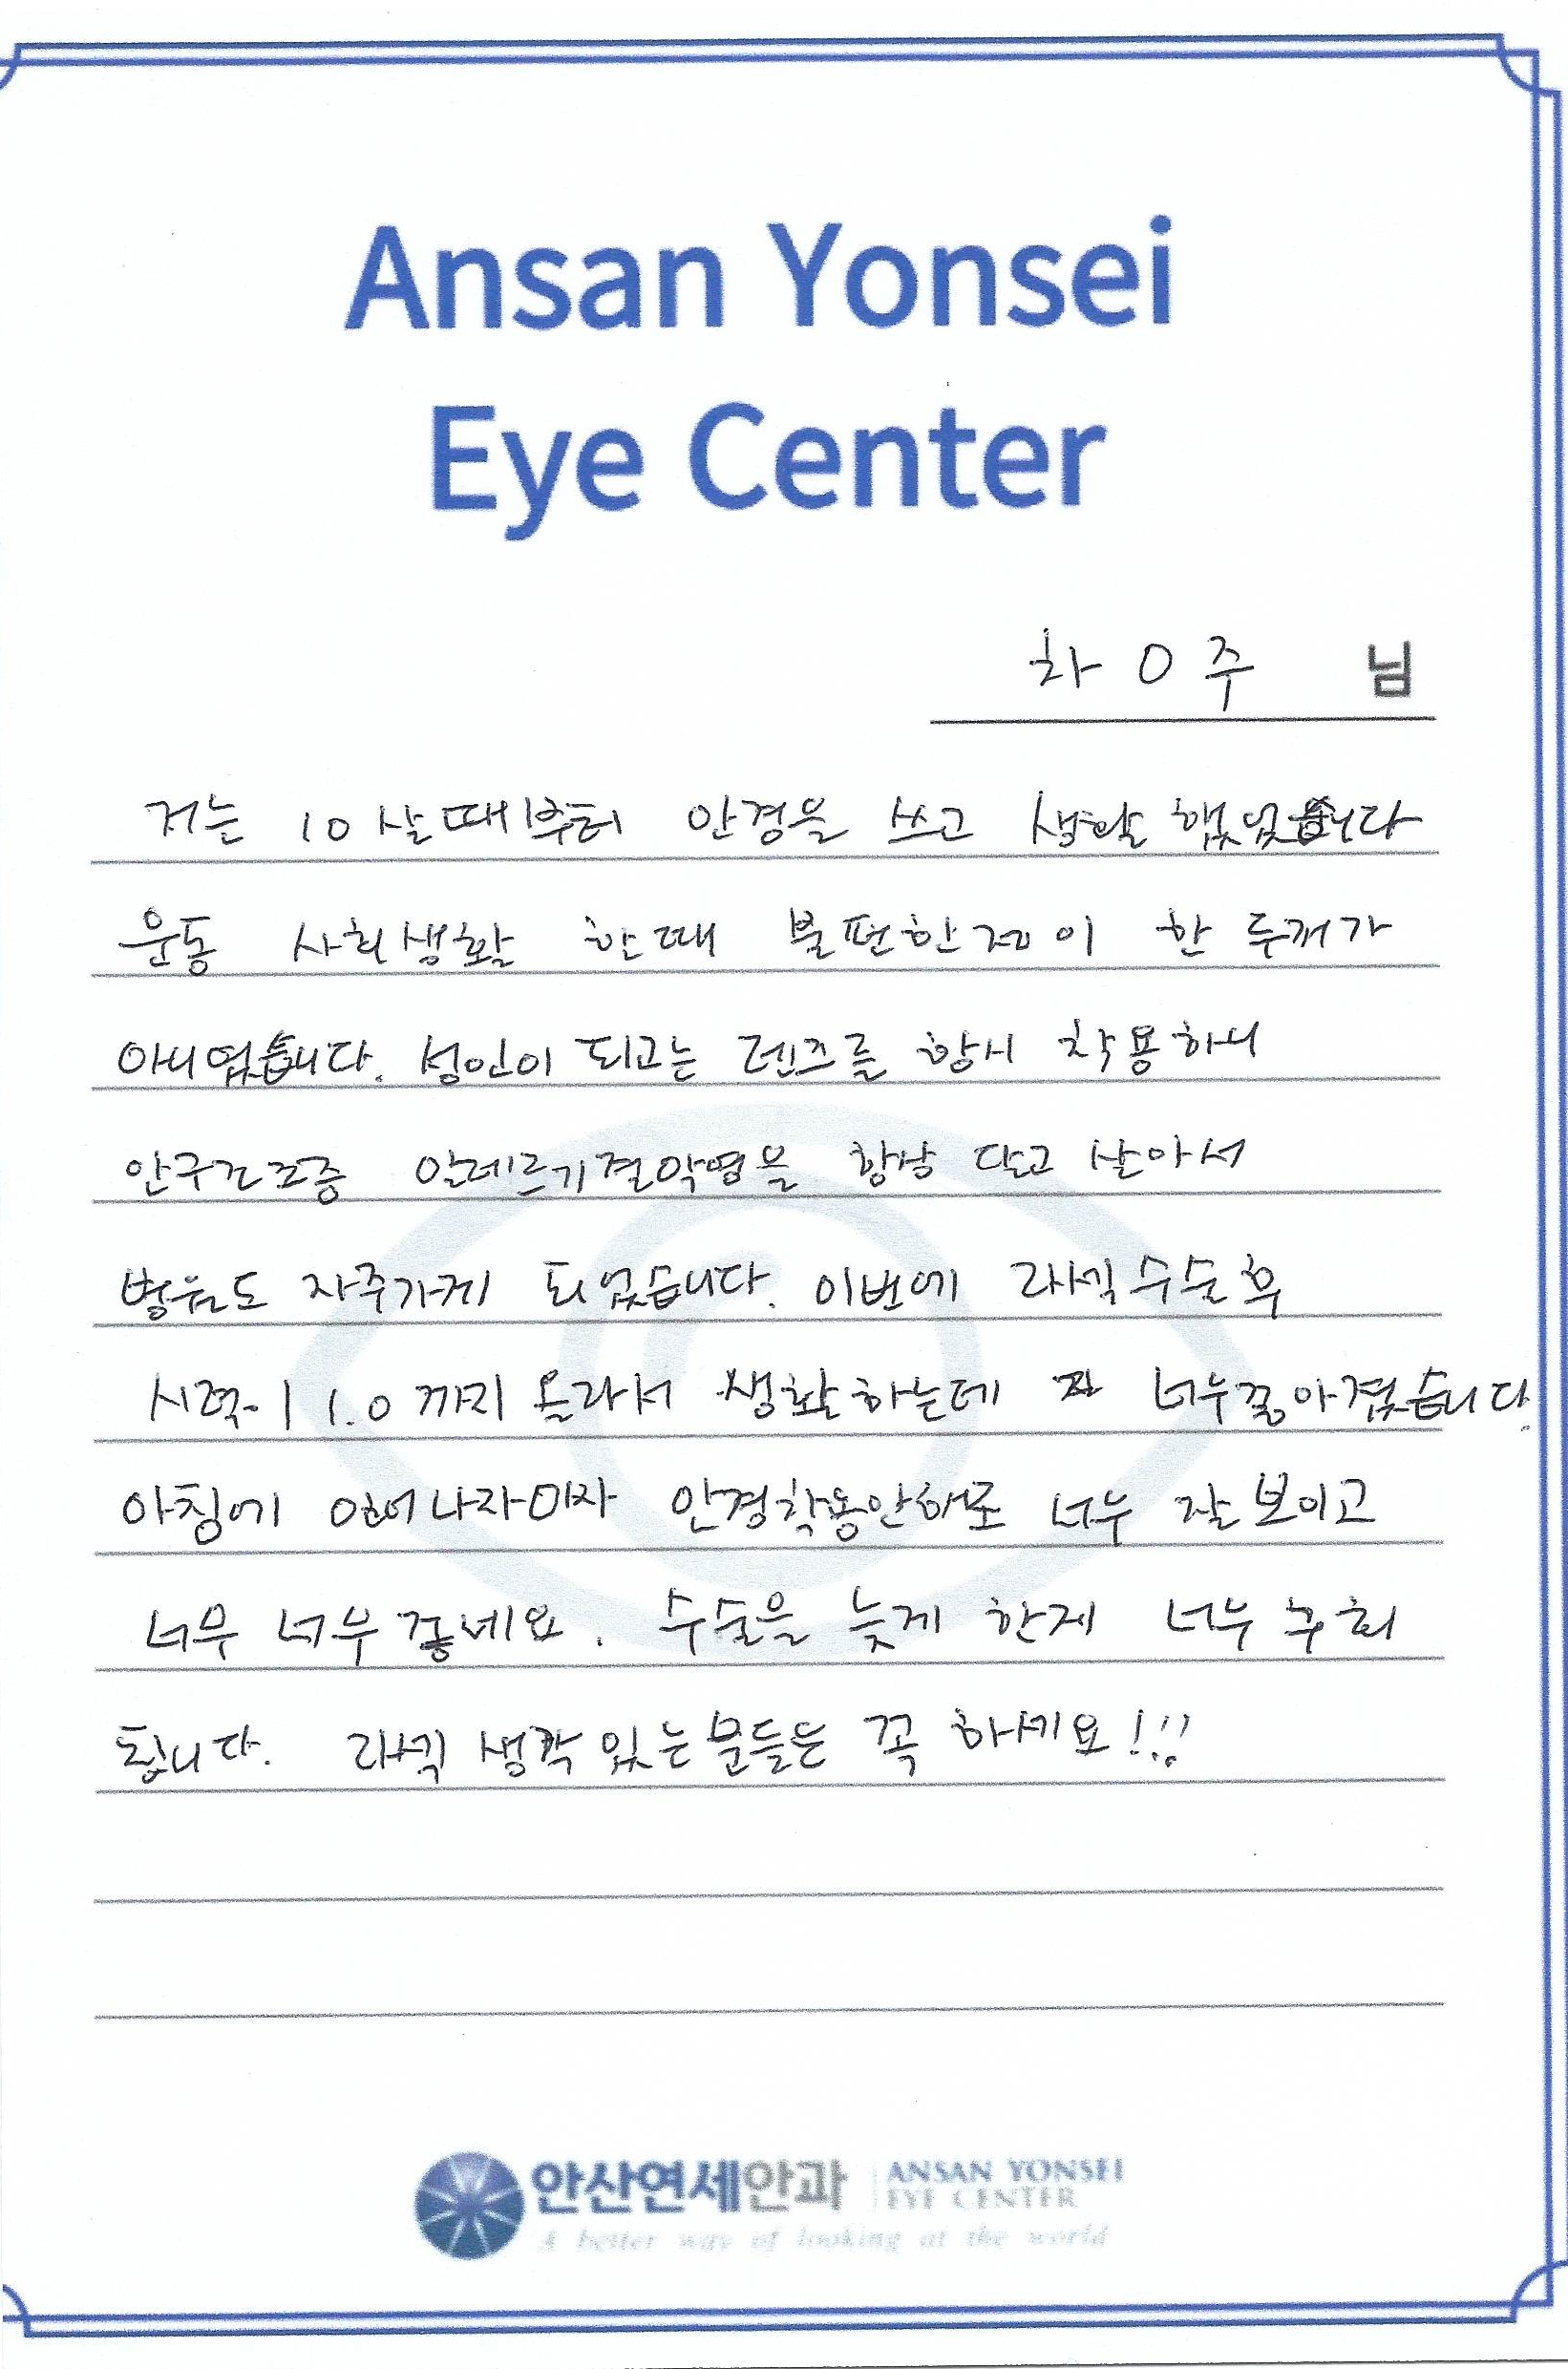 Ansan Yonsei
Eye Center
차 O 주 님
저는 10살때부터 안경을 쓰고 생활 했었습니다
운동 사회생활 할때 불편한점이 한 두개가
아니였습니다. 성인이 되고는 렌즈를 항시 착용하니
안구건조증 알레르기결막염을 항상 달고 살아서
병원도 자주가게 되었습니다. 이번에 라섹수술후
시력이 1.0 까지 올라서 생활하는데 너무좋아졌습니다.
아침에 일어나자마자 안경착용안해도 너무 잘 보이고
너무 너무 좋네요. 수술을 늦게 한게 너무 후회
됩니다. 라섹 생각 있는분들은 꼭 하세요!!!
안산연세안과 ANSAN YONSEI
EYE CENTER
A better way of looking at the world